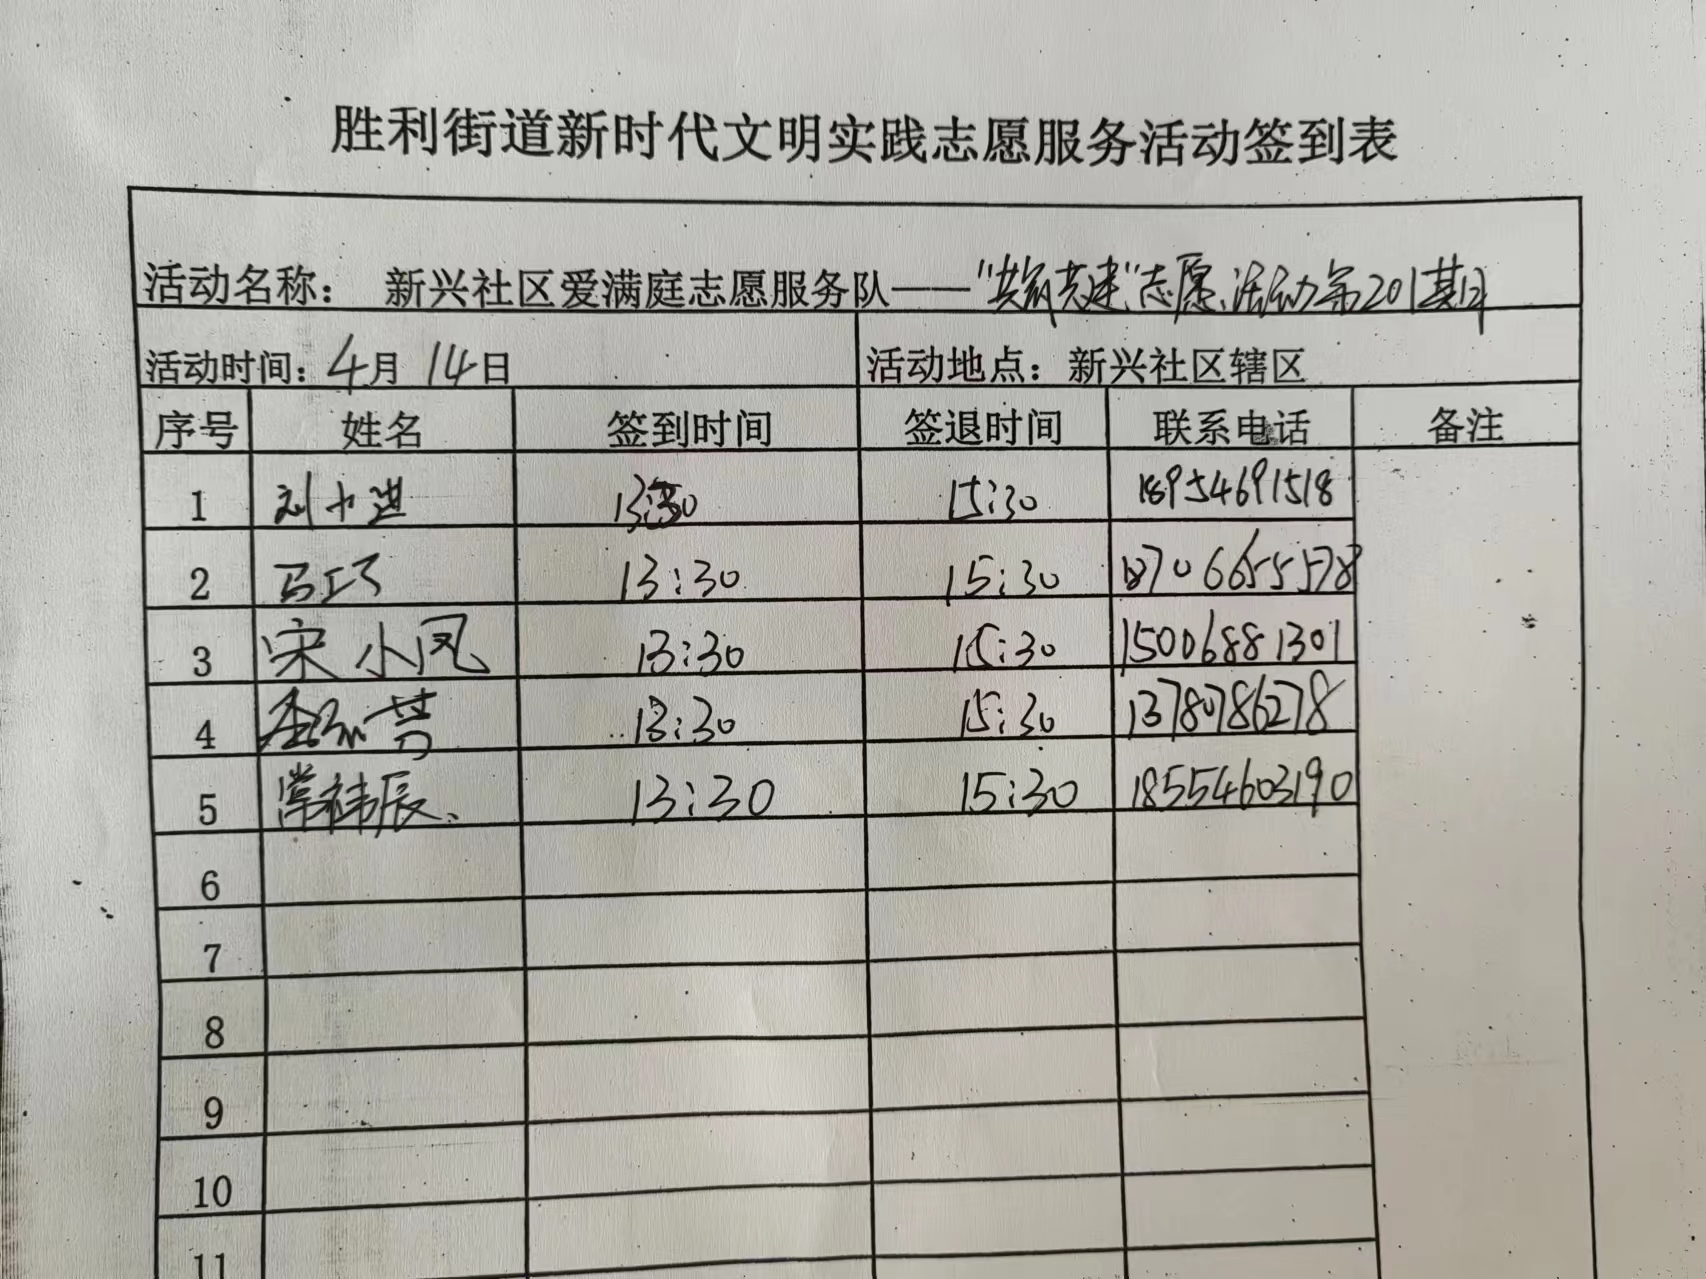 胜利街道新时代文明实践志愿服务活动签到表
活动名称： 新兴社区爱满庭志愿服务队——“共筑共建”志愿活动第201期
活动时间：4月14日 活动地点：新兴社区辖区
序号 姓名 签到时间 签退时间 联系电话 备注
1 刘 13:30 15:30 18954691518
2 马巧 13:30 15:30 18706655578
3 宋小凤 13:30 15:30 15006881301
4 13:30 15:30 13780786278
5 常祎辰 13:30 15:30 18554603190
6
7
8
9
10
11